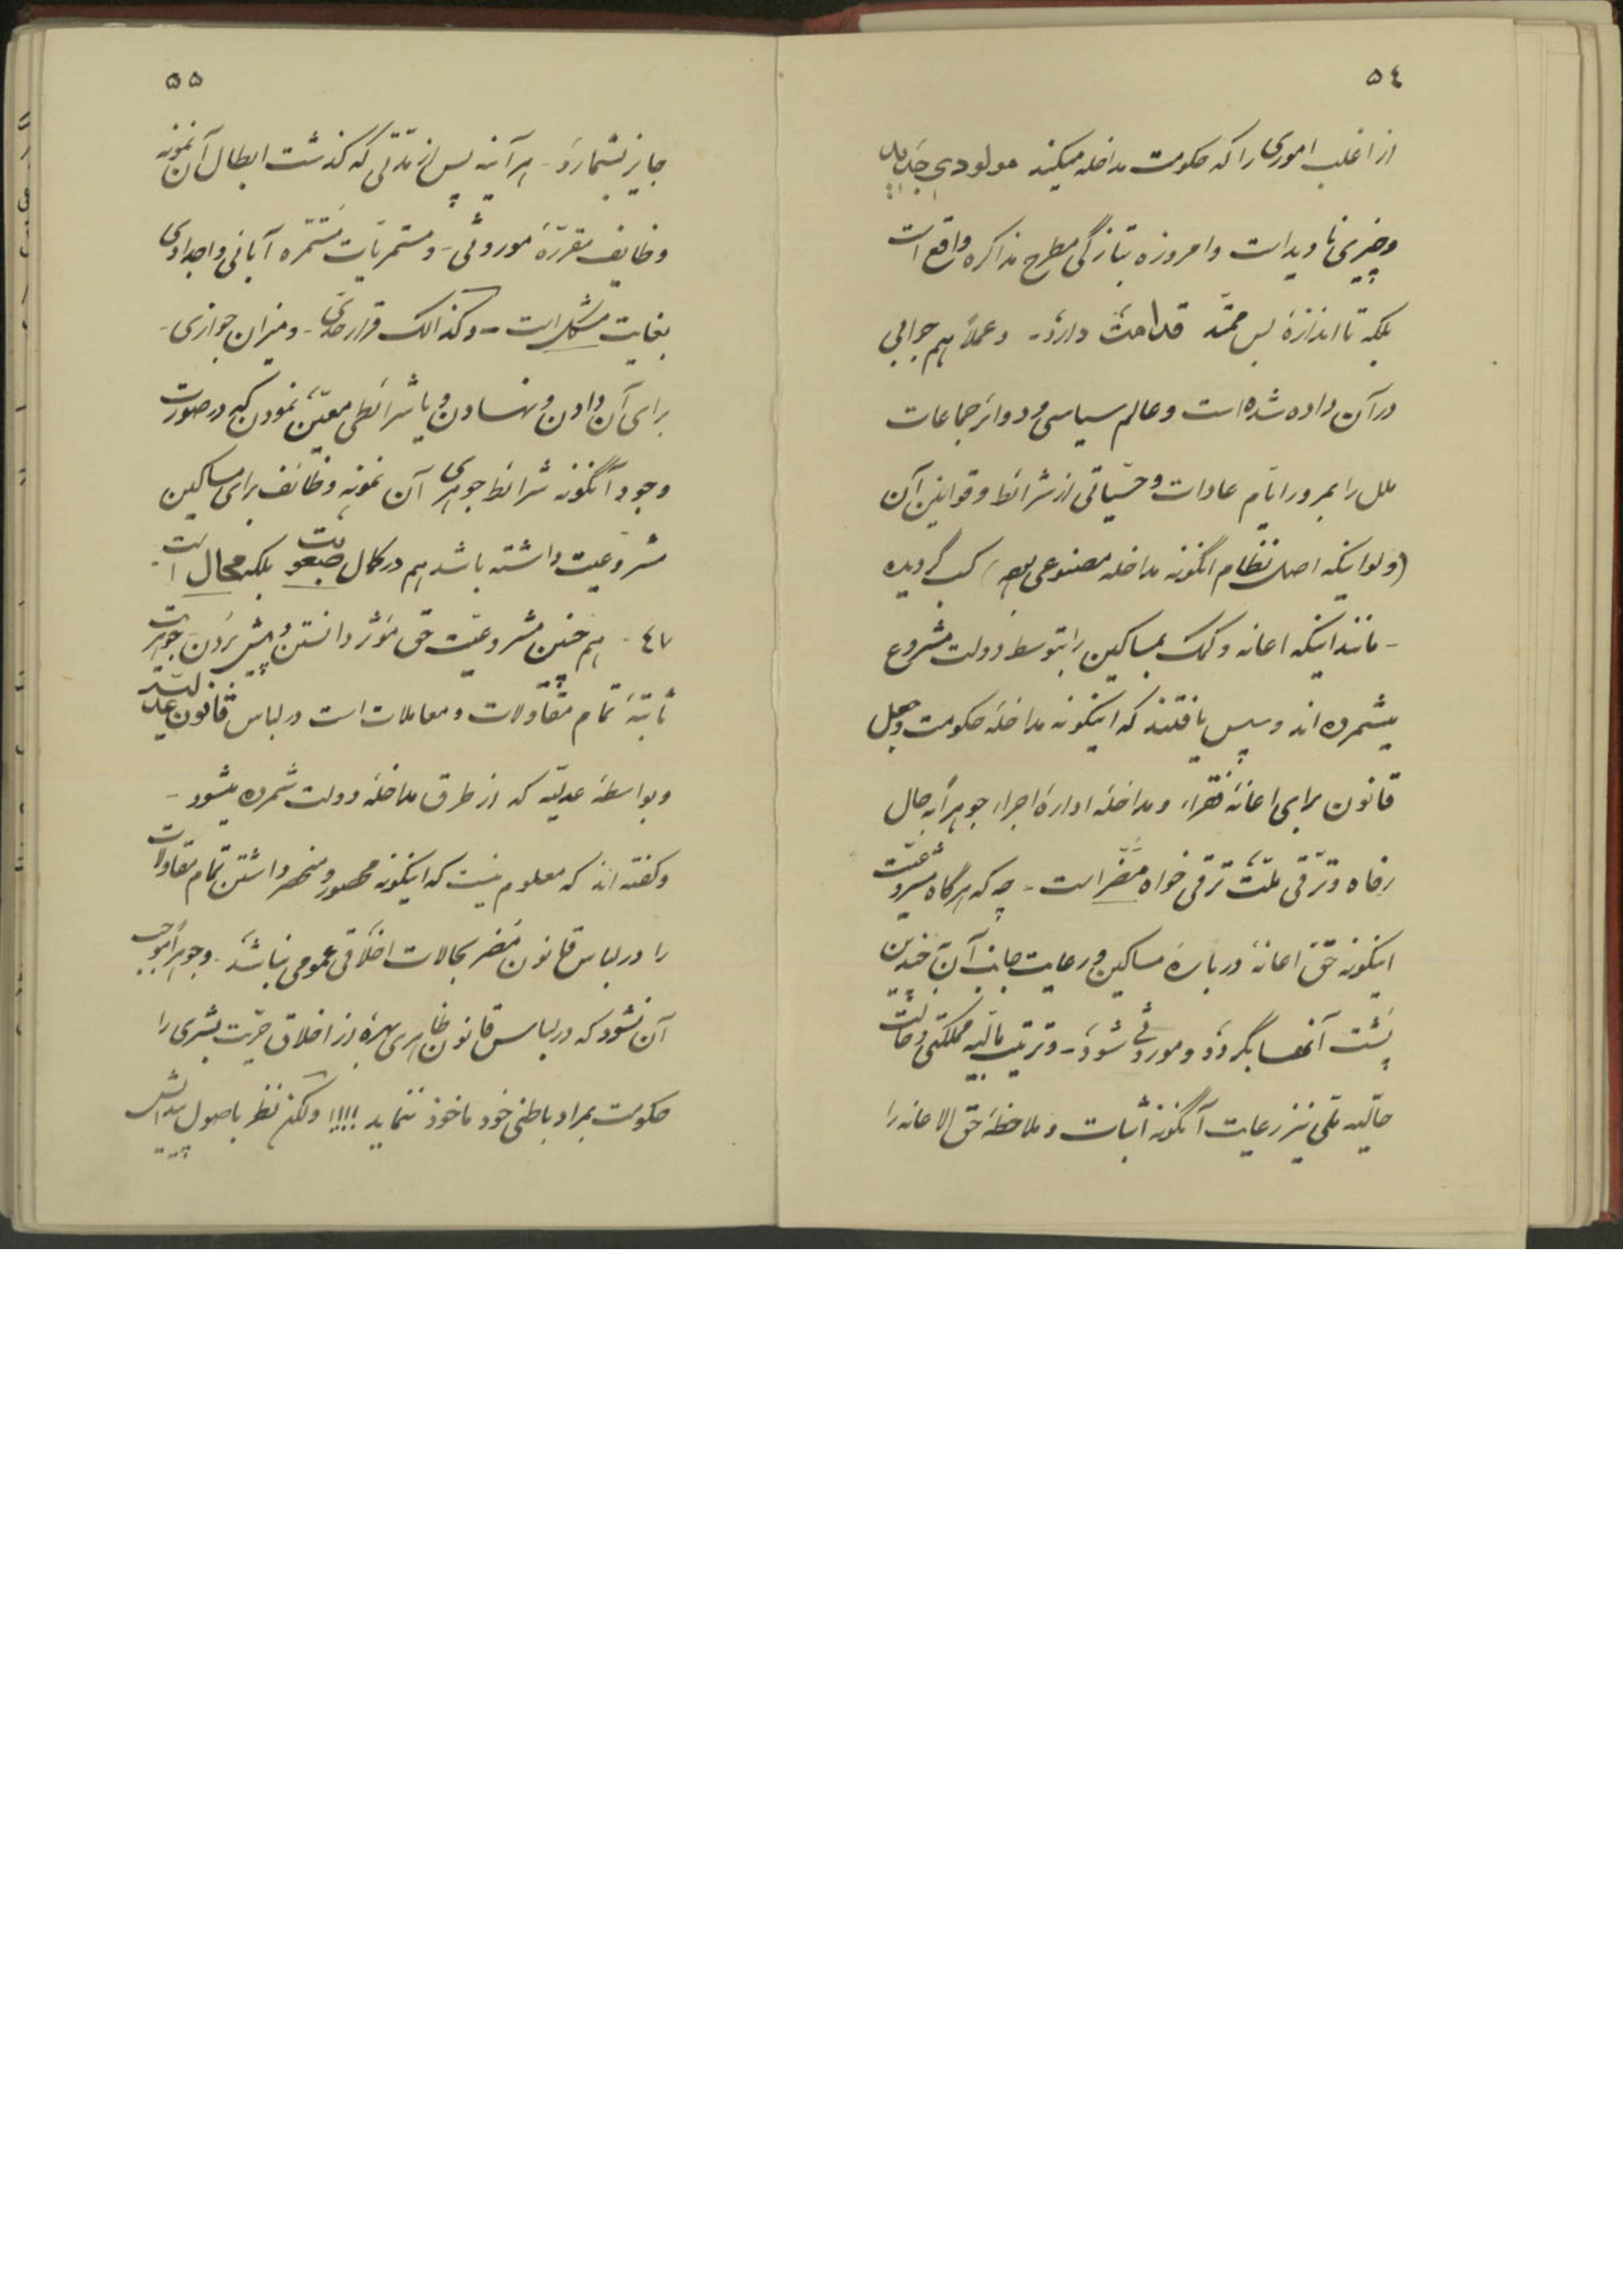 ٥٤
از اغلب اموری را که حکومت مداخله میکند مولودی جدید
و چیزی نا دید است و امروزه بتازگی مطرح مذاکره واقع است
بلکه تا اندازهٔ بس ممتد قدامت دارد - و عملاً هم جوابی
در آن داده شده است و عالم سیاسی و دوائر جماعات
ملل را بمرور ایام عادات و حسیاتی از شرائط و قوانین آن
(ولو اینکه اصل نظام اینگونه مداخله مصنوعی بود) کسب گردیده
- مانند اینکه اعانه و کمک بمساکین را بتوسط دولت مشروع
میشمرده اند و سپس یافتند که اینگونه مداخلهٔ حکومت و جعل
قانون برای اعانهٔ فقراء و مداخلهٔ ادارهٔ اجراء جوهراً به حال
رفاه و ترقی ملت ترقی خواه مضر است - چه که هرگاه مشروعیت
اینگونه حق اعانه در بارهٔ مساکین و رعایت جانب آن چندین
پشت آنها بگردد و موروثی شود - و ترتیب مالیه مملکتی و حالت
حالیه ملی نیز رعایت آنگونه اثبات و ملاحظهٔ حق الاعانه را
٥٥
جایز نشمارد - هر آینه پس از مدتی که گذشت ابطال آن نمونه
وظایف مقررهٔ موروثی - و مستمریات مستمره آبائی و اجدادی
بغایت مشکل است - و کذالک قرار حدی - و میزان جوازی -
برای آن دادن و نهادن و یا شرائطی معین نمودن که در صورت
وجود آنگونه شرائط جوهری آن نمونه وظائف برای مساکین
مشروعیت داشته باشد هم در کمال صعوبت بلکه محال است
٤٧ - هم چنین مشروعیت حق مؤثر دانستن و پیش بردن جوهریت
ثابتهٔ تمام مقاولات و معاملات است در لباس قانون عدلیه
و بواسطهٔ عدلیه که از طرق مداخلهٔ دولت شمرده میشود -
و گفته اند که معلوم نیست که اینگونه محصور و منحصر داشتن تمام مقاولات
را در لباس قانون مضر بحالات اخلاقی عمومی نباشد - و جوهراً موجب
آن نشود که در لباس قانون ظاهری بهره از اخلاق حریت بشری را
حکومت بمراد باطنی خود مأخوذ ننماید !!!! ولکن نظر باصول پیدایش